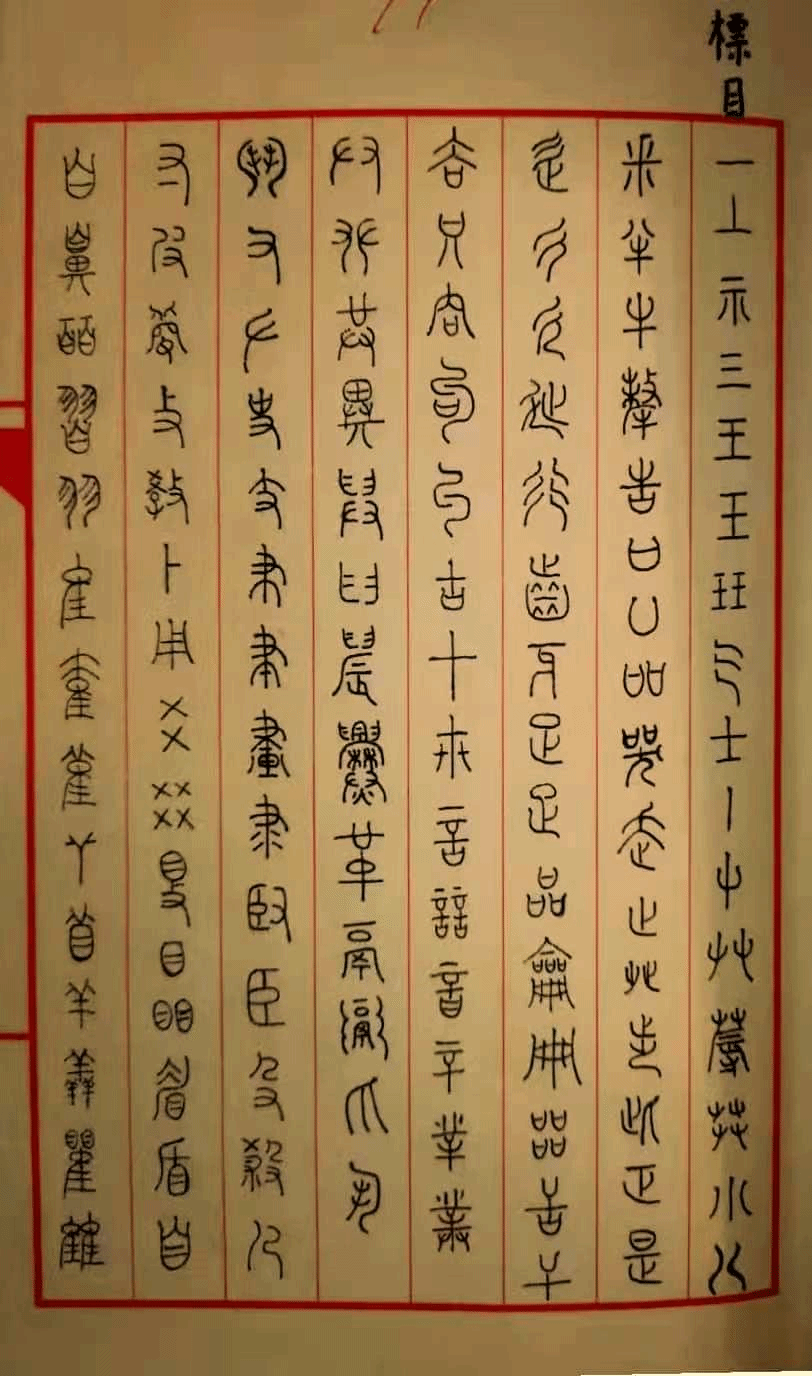 標目
一上示三王玉玨气士丨屮艸蓐茻小八
釆半牛犛告口凵吅哭走止癶步此正是
辵彳廴㢟行齒牙足疋品龠冊㗊舌干
𧮫只㕯句丩古十卅言誩音䇂丵菐
廾𠬜共異舁𦥑晨爨革鬲䰜爪丮
鬥又𠂇史支𦘒聿畫隶臤臣殳殺𠘧
寸皮㼱攴教卜用爻㸚𡕥目䀠眉盾自
白鼻皕習羽隹奞雈𦫳𥄕羊羴瞿雔